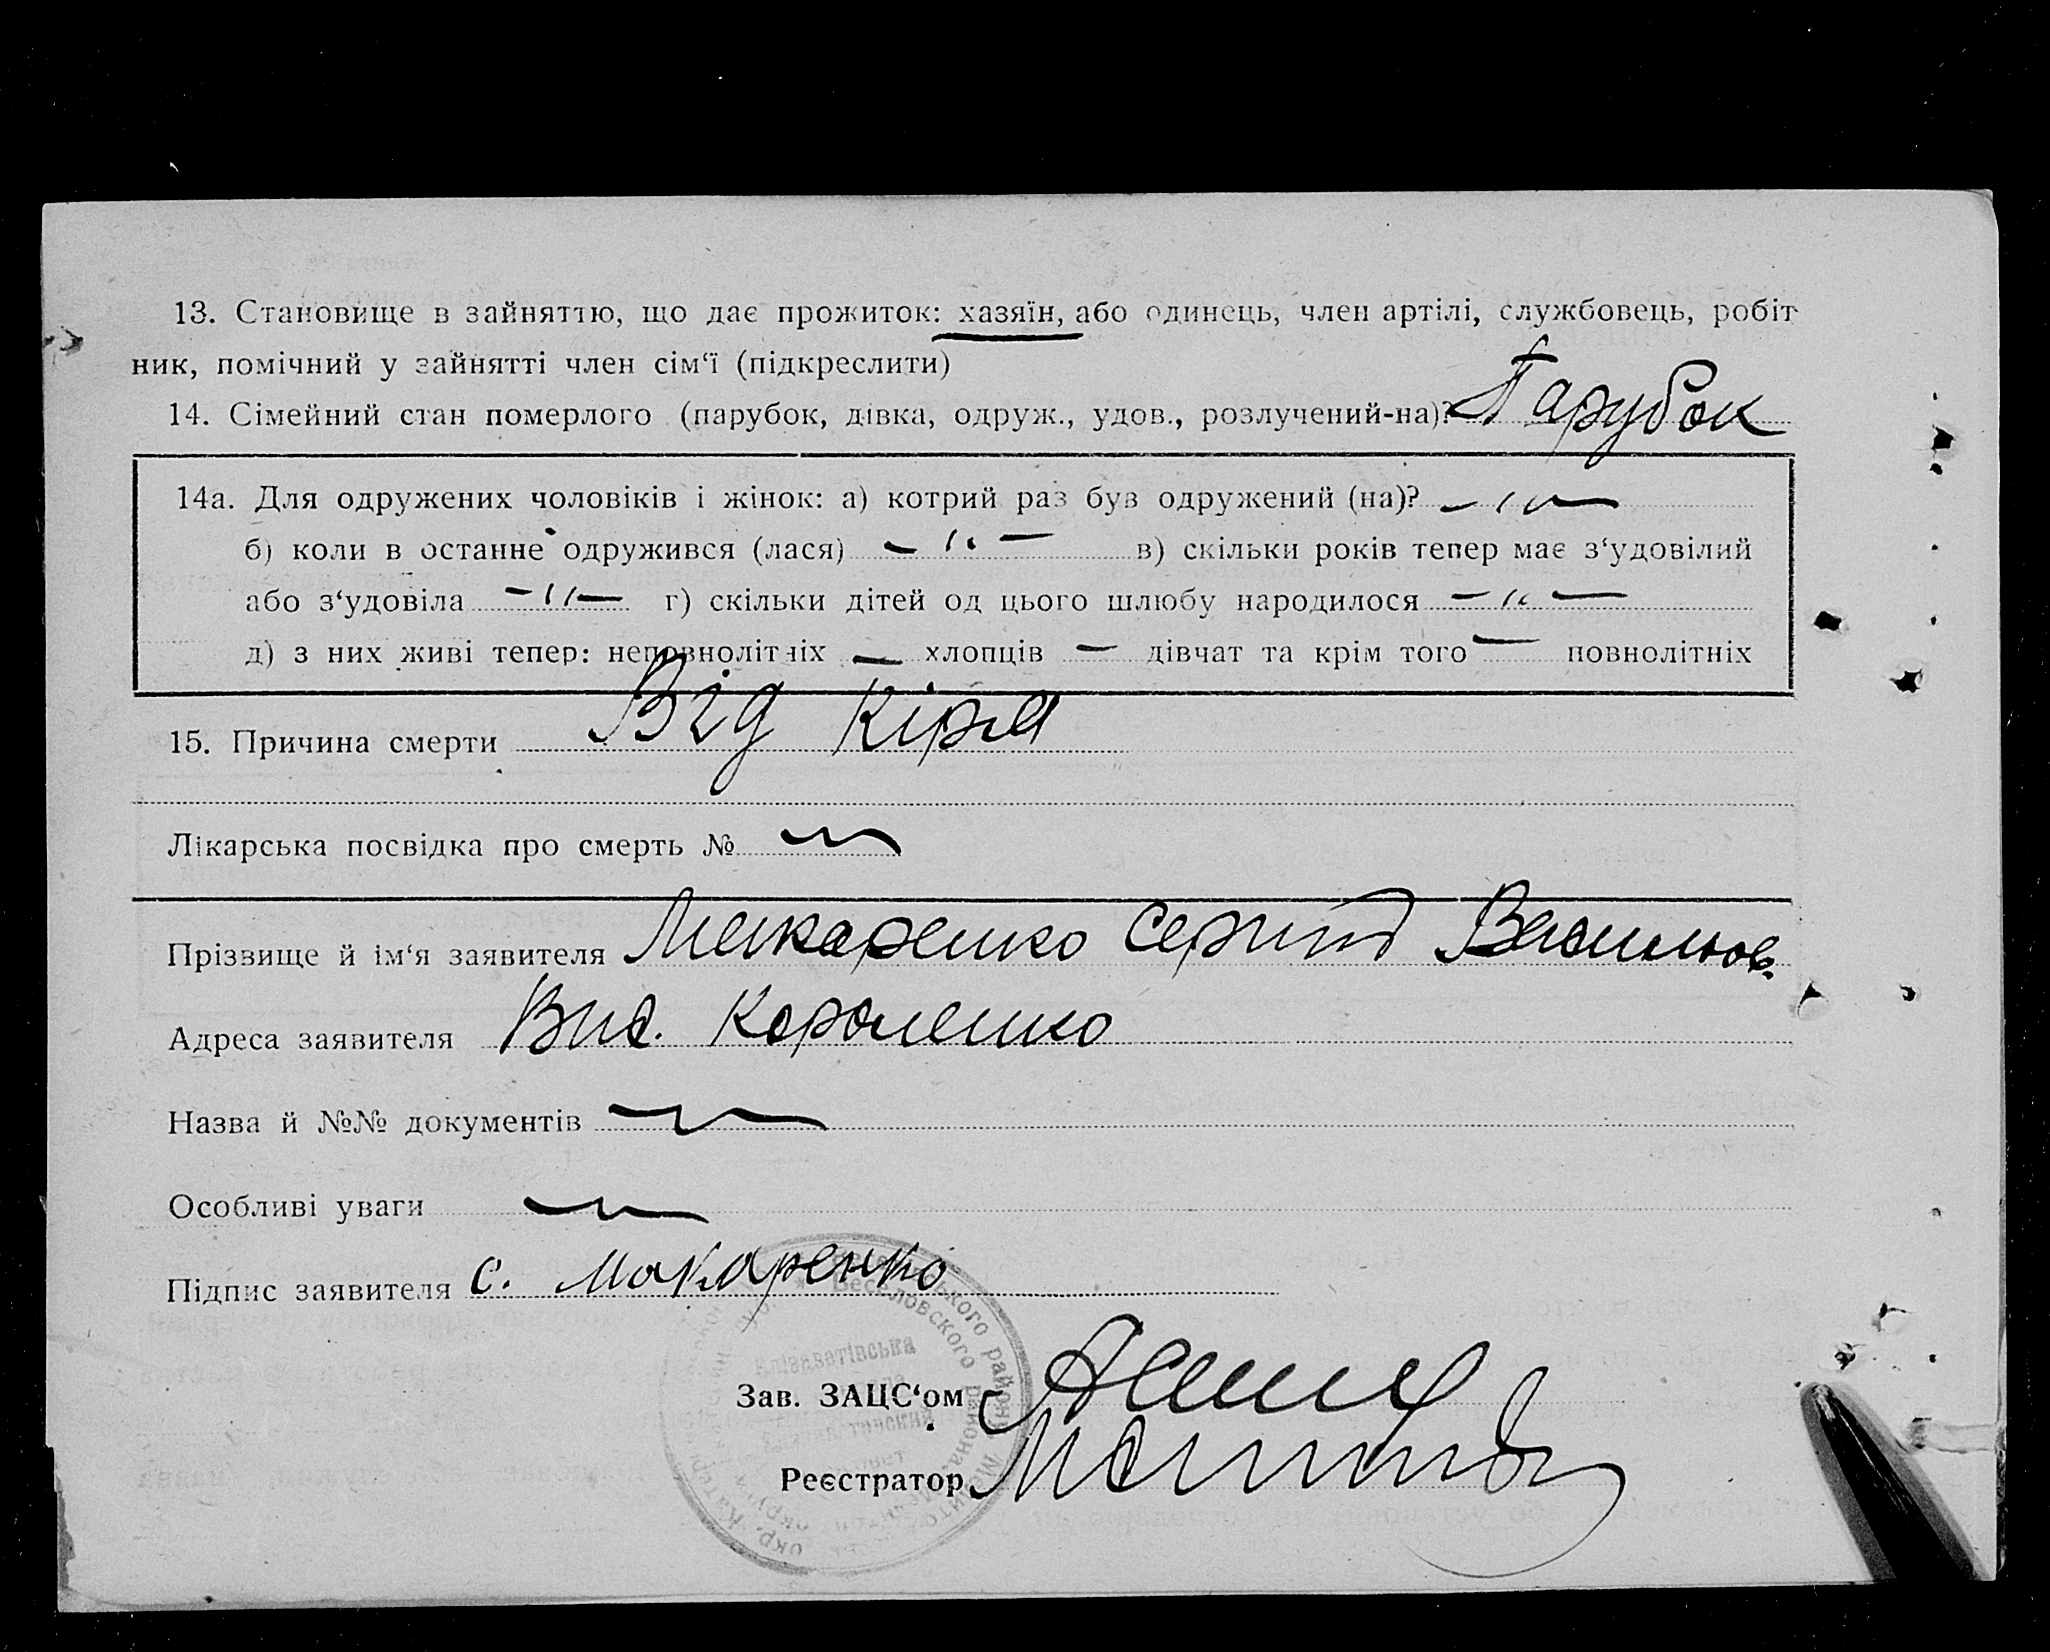 13. Становище в зайняттю, що дає прожиток: хазяїн, або одинець, член артілі, службовець, робіт
ник, помічний у зайнятті член сім‘ї (підкреслити)
14. Сімейний стан померлого (парубок, дівка, одруж., удов., розлучений-на)? Парубок
14а. Для одружених чоловіків і жінок: а) котрий раз був одружений (на)? —〃 —
б) коли в останнє одружився (лася) — 〃 — в) скільки років тепер має з‘удовілий
або з‘удовіла — 〃 — г) скільки дітей од цього шлюбу народилося — 〃 —
д) з них живі тепер: неповнолітніх — хлопців — дівчат та крім того — повнолітніх
15. Причина смерти Від кіра
Лікарська посвідка про смерть №
Прізвище й ім‘я заявителя Макаренко Сергій Васильов.
Адреса заявителя Вис. Короленко
Назва й №№ документів
Особливі уваги
Підпис заявителя С. Макаренко
Веселовского района
Єлізаветівська
Зав. ЗАЦС‘ом
Реєстратор